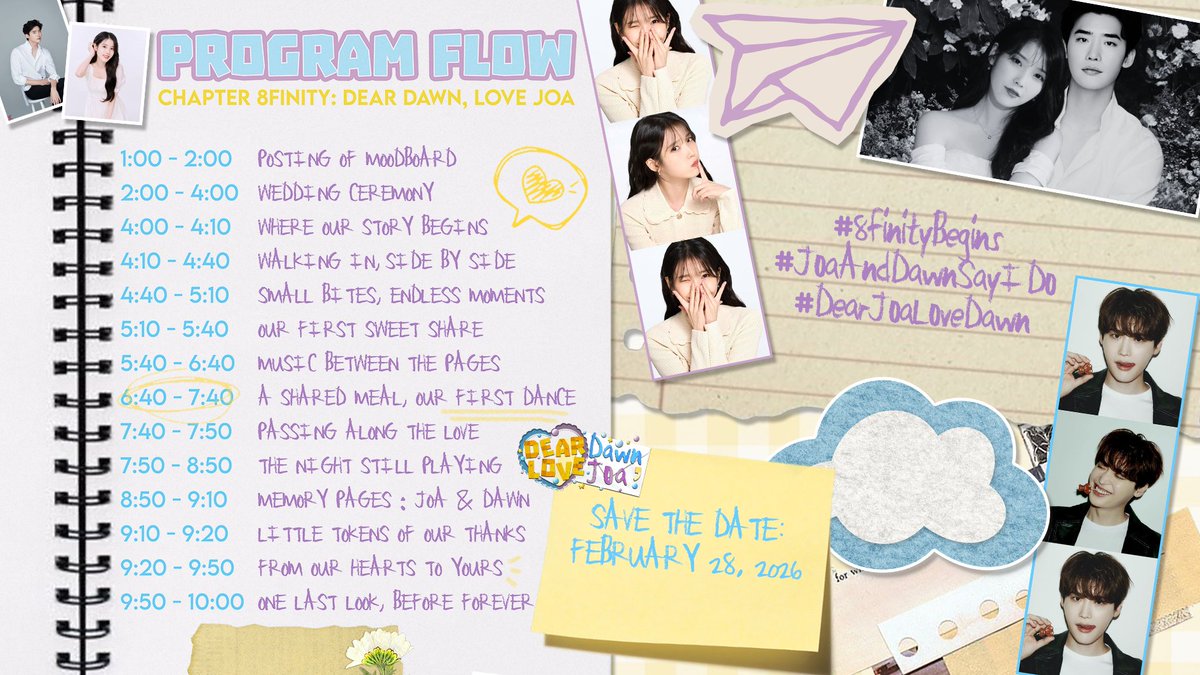 PROGRAM FLOW
CHAPTER 8FINITY: DEAR DAWN, LOVE JOA
1:00 - 2:00 POSTING OF MOODBOARD
2:00 - 4:00 WEDDING CEREMONY
4:00 - 4:10 WHERE OUR STORY BEGINS
4:10 - 4:40 WALKING IN, SIDE BY SIDE
4:40 - 5:10 SMALL BITES, ENDLESS MOMENTS
5:10 - 5:40 OUR FIRST SWEET SHARE
5:40 - 6:40 MUSIC BETWEEN THE PAGES
6:40 - 7:40 A SHARED MEAL, OUR FIRST DANCE
7:40 - 7:50 PASSING ALONG THE LOVE
7:50 - 8:50 THE NIGHT STILL PLAYING
8:50 - 9:10 MEMORY PAGES : JOA & DAWN
9:10 - 9:20 LITTLE TOKENS OF OUR THANKS
9:20 - 9:50 FROM OUR HEARTS TO YOURS
9:50 - 10:00 ONE LAST LOOK, BEFORE FOREVER
#8finityBegins
#JoaAndDawnSayI Do
#DearJoaLoveDawn
DEAR Dawn
LOVE Joa
SAVE THE DATE:
FEBRUARY 28, 2026